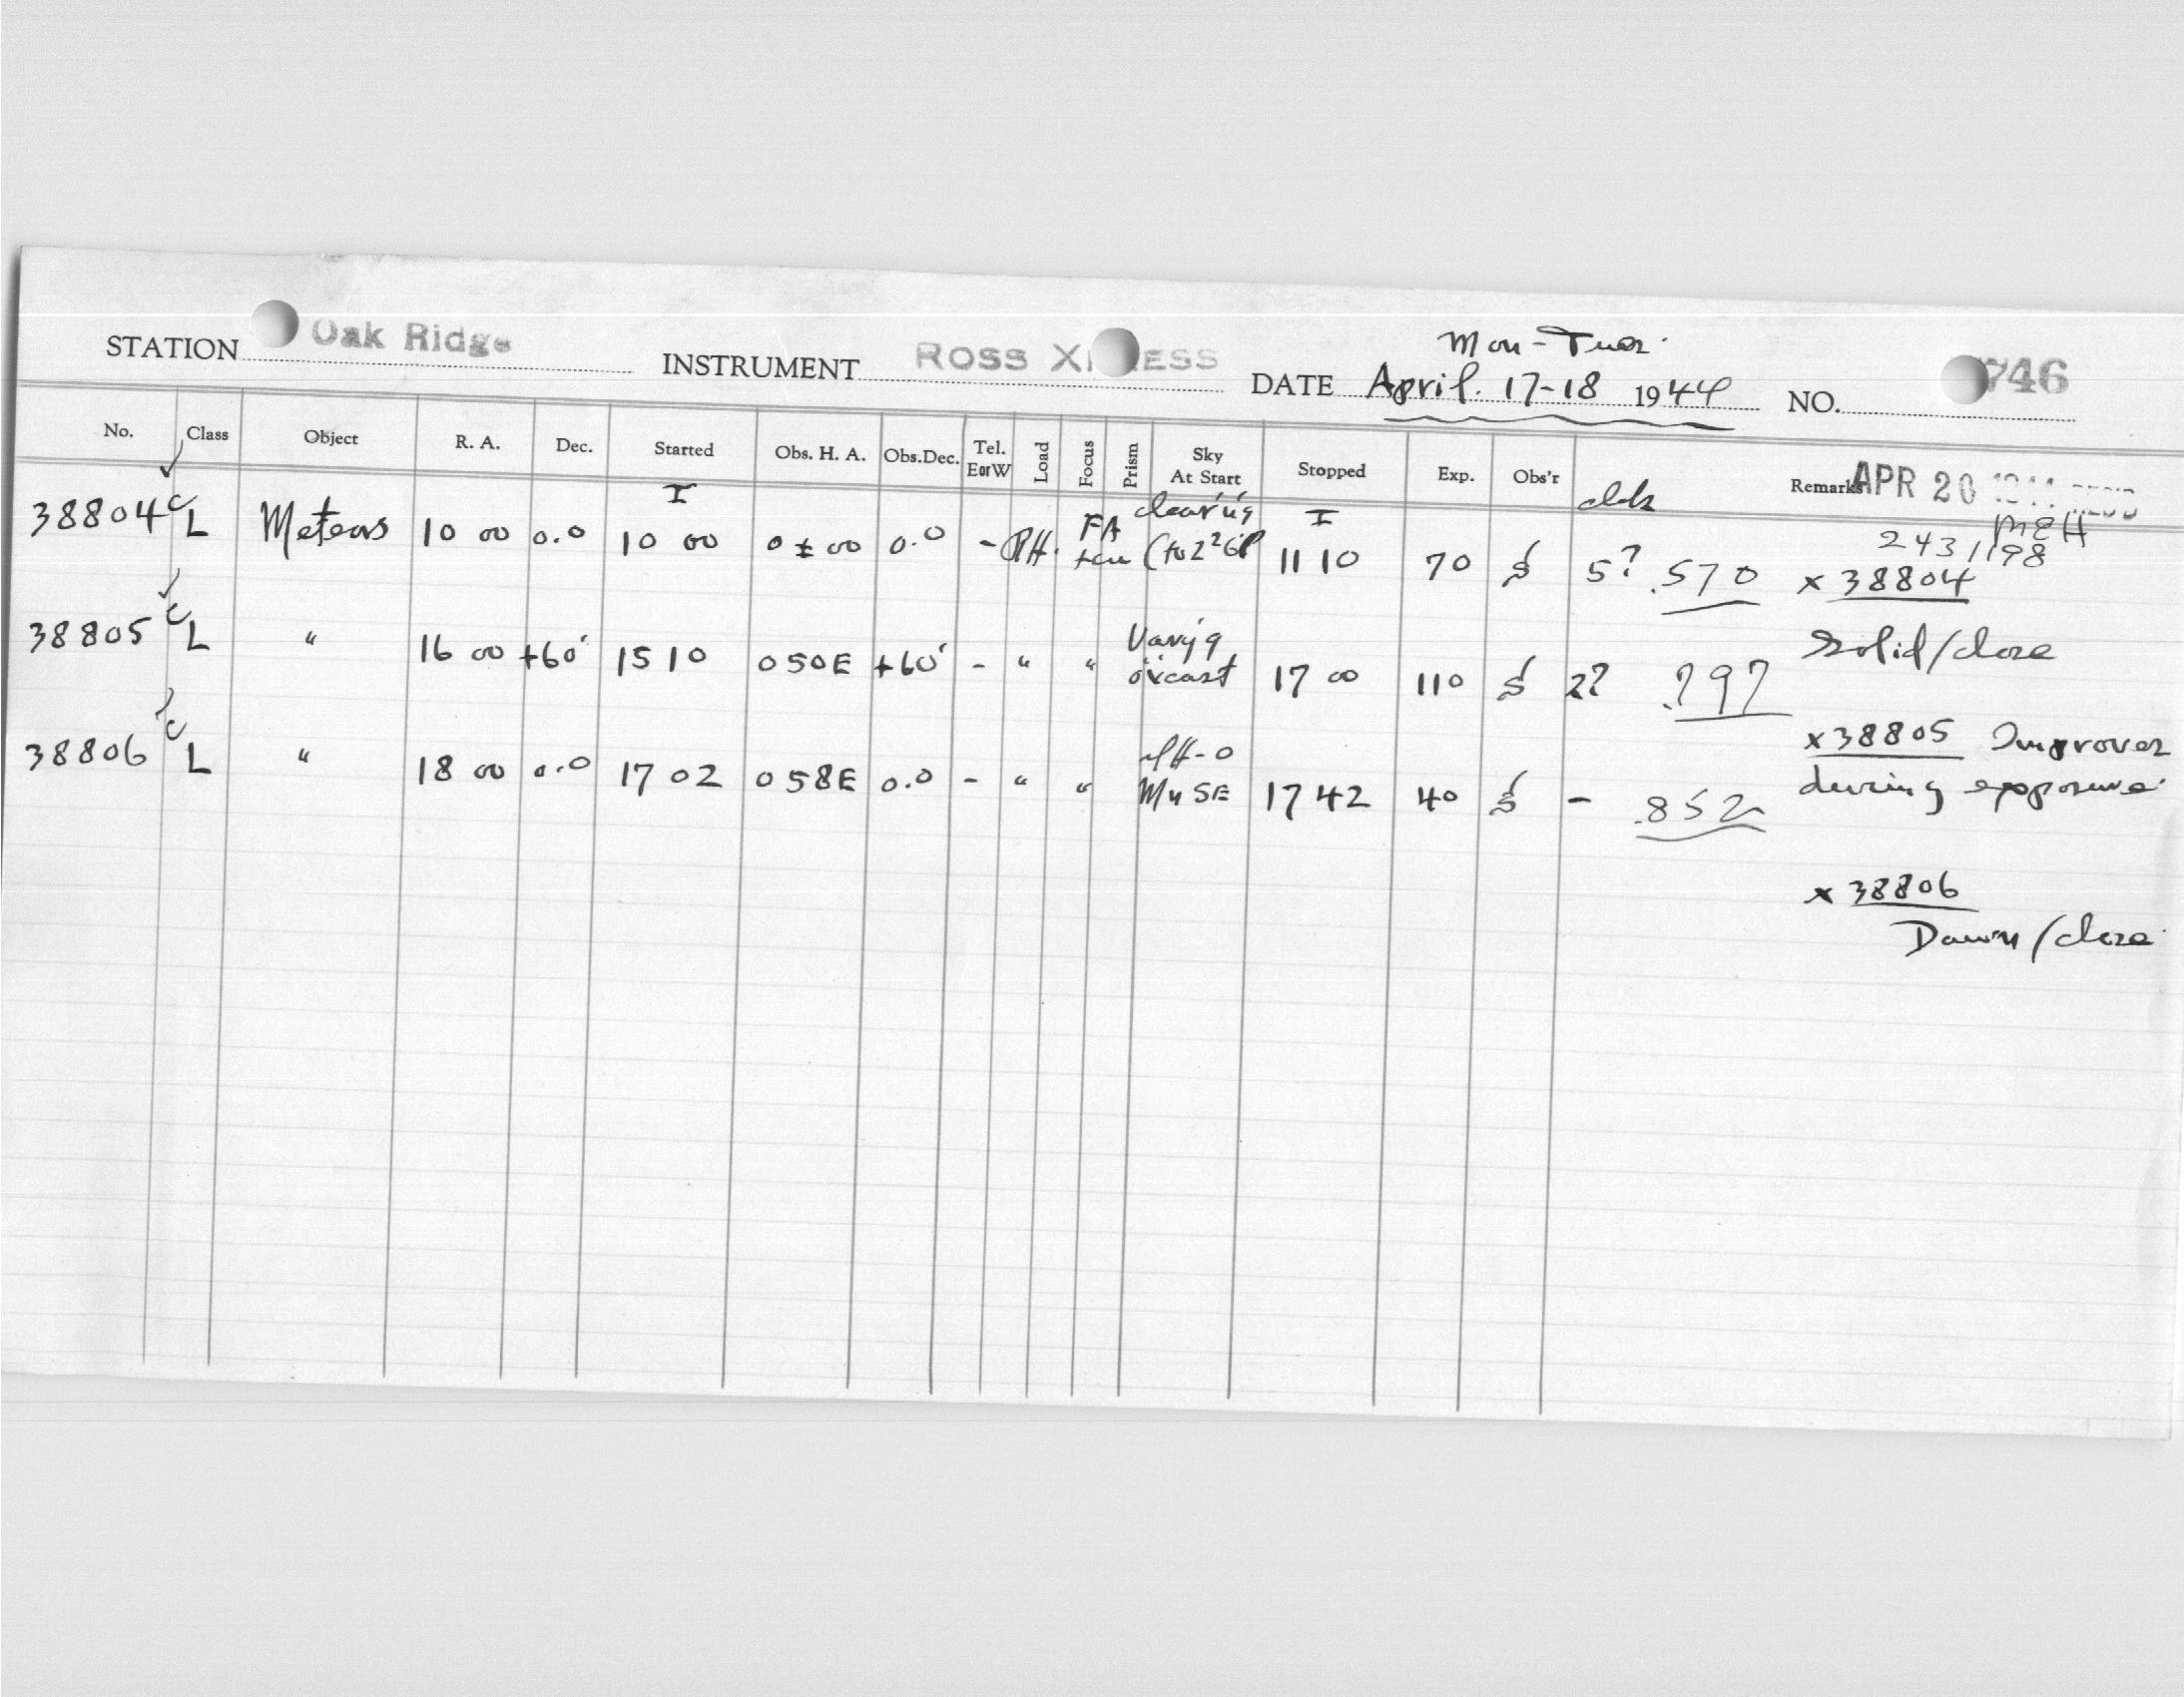 Mon-Tues.
STATION Oak Ridge INSTRUMENT ROSS X ESS DATE April. 17-18 1944 NO. 746
No. Class Object R. A. Dec. Started Obs. H. A. Obs.Dec. Tel. EorW Load Focus Prism Sky At Start Stopped Exp. Obs'r Remarks APR 20
I clearing I clds MEH
38804 c L Meteors 10 00 0.0 10 00 0 ± 00 0.0 - PH. FA 11 10 70 5? .570 243 1198
x 38804
Solid/close
38805 c L " 16 00 +60 15 10 0 50E +60 - " " Vary'g o'xcast 17 00 110 2? .797
x 38805 Improves
during exposure
38806 c L " 18 00 0.0 17 02 0 58E 0.0 - " " MW SE 17 42 40 - .852
x 38806
Dawn/close